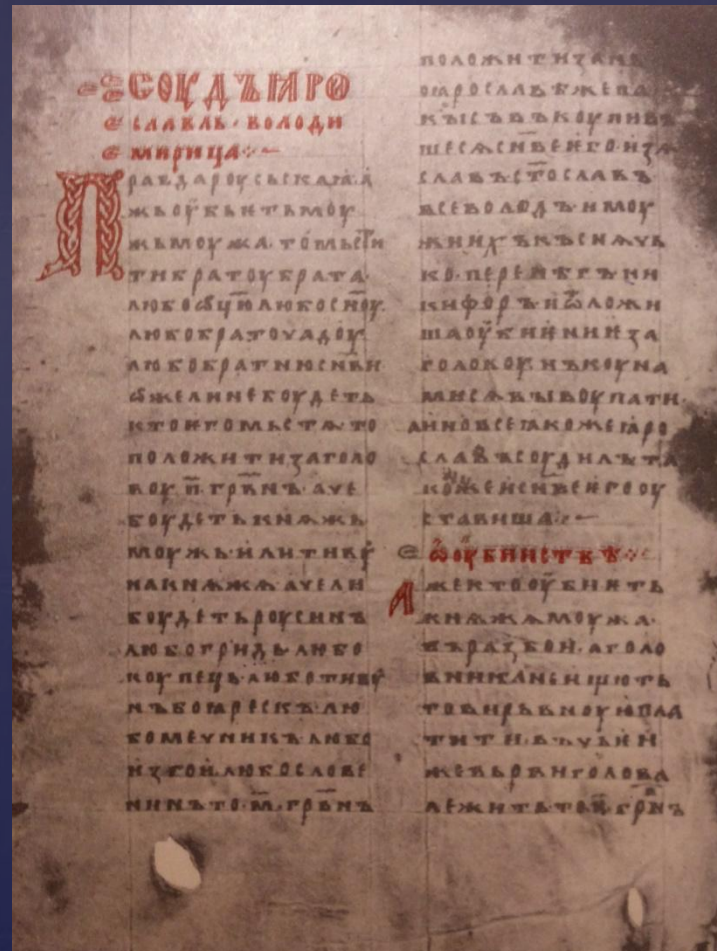 СОУДЪ ꙖРО
СЛАВЛЬ · ВОЛОДИ
МИРИЦА
ПРАВДА РОУСЬСКАꙖ · А
ЖЬ ОУБЬѤТЬ МОУ
ЖЬ МОУЖА · ТО МЬСТИ
ТИ БРАТОУ БРАТА ·
ЛЮБО ѾЦЮ ЛЮБО СН҃ОУ
ЛЮБО БРАТОУЧАДОУ
ЛЮБО БРАТНЮ СН҃ВИ
ѾЖЕ ЛИ НЕ БОУДЕТЬ
КТО ѤГО МЬСТѦ · ТО
ПОЛОЖИТИ ЗА ГОЛО
ВОУ · П҃ · ГРВ҃НЪ · АЧЕ
БОУДЕТЬ КНѦЖЬ
МОУЖЬ · ИЛИ ТИВОУ
НА КНѦЖѦ · АЧЕ ЛИ
БОУДЕТЬ РОУСИНЪ
ЛЮБО ГРИДЬ · ЛЮБО
КОУПЕЦЬ · ЛЮБО ТИВОУ
НЪ БОꙖРЕСКЪ · ЛЮ
БО МЕЧНИКЪ · ЛЮБО
ИЗГОИ · ЛЮБО СЛОВЕ
НИНЪ · ТО · М҃ · ГРВ҃НЪ
ПОЛОЖИТИ ЗА НЬ
ПО ꙖРОСЛАВѢ ЖЕ ПА
КЫ СЪВЪКОУПИВЪ
ШЕСѦ СН҃ВЕ ѤГО · ИЗѦ
СЛАВЪ СТ҃ОСЛАВЪ
ВСЕВОЛОДЪ · И МОУ
ЖИ ИХЪ КЪСНѦЧЬ
КО · ПЕРЕНѢГЪ НИ
КИФОРЪ · И ѾЛОЖИ
ША ОУБИѤНИѤ ЗА
ГОЛОВОУ · НЪ КОУНА
МИ СѦ ВЫКОУПАТИ ·
А ИНО ВСЕ ꙖКОЖЕ ꙖРО
СЛАВЪ СОУДИЛЪ ТА
КОЖЕ И СН҃ВЕ ѤГО ОУ
СТАВИША
Ѡ ОУБИИСТВѢ
АЖЕ КТО ОУБИѤТЬ
КНѦЖѦ МОУЖА ·
ВЪ РАЗБОИ · А ГОЛО
ВНИКА НЕ ИЩЮТЬ
ТО ВИРЬВНОУЮ ПЛА
ТИТИ · ВЪ ЧЬѤИ
ЖЕ ВЬРВИ ГОЛОВА
ЛЕЖИТЬ ТО П҃ ГРВ҃НЪ